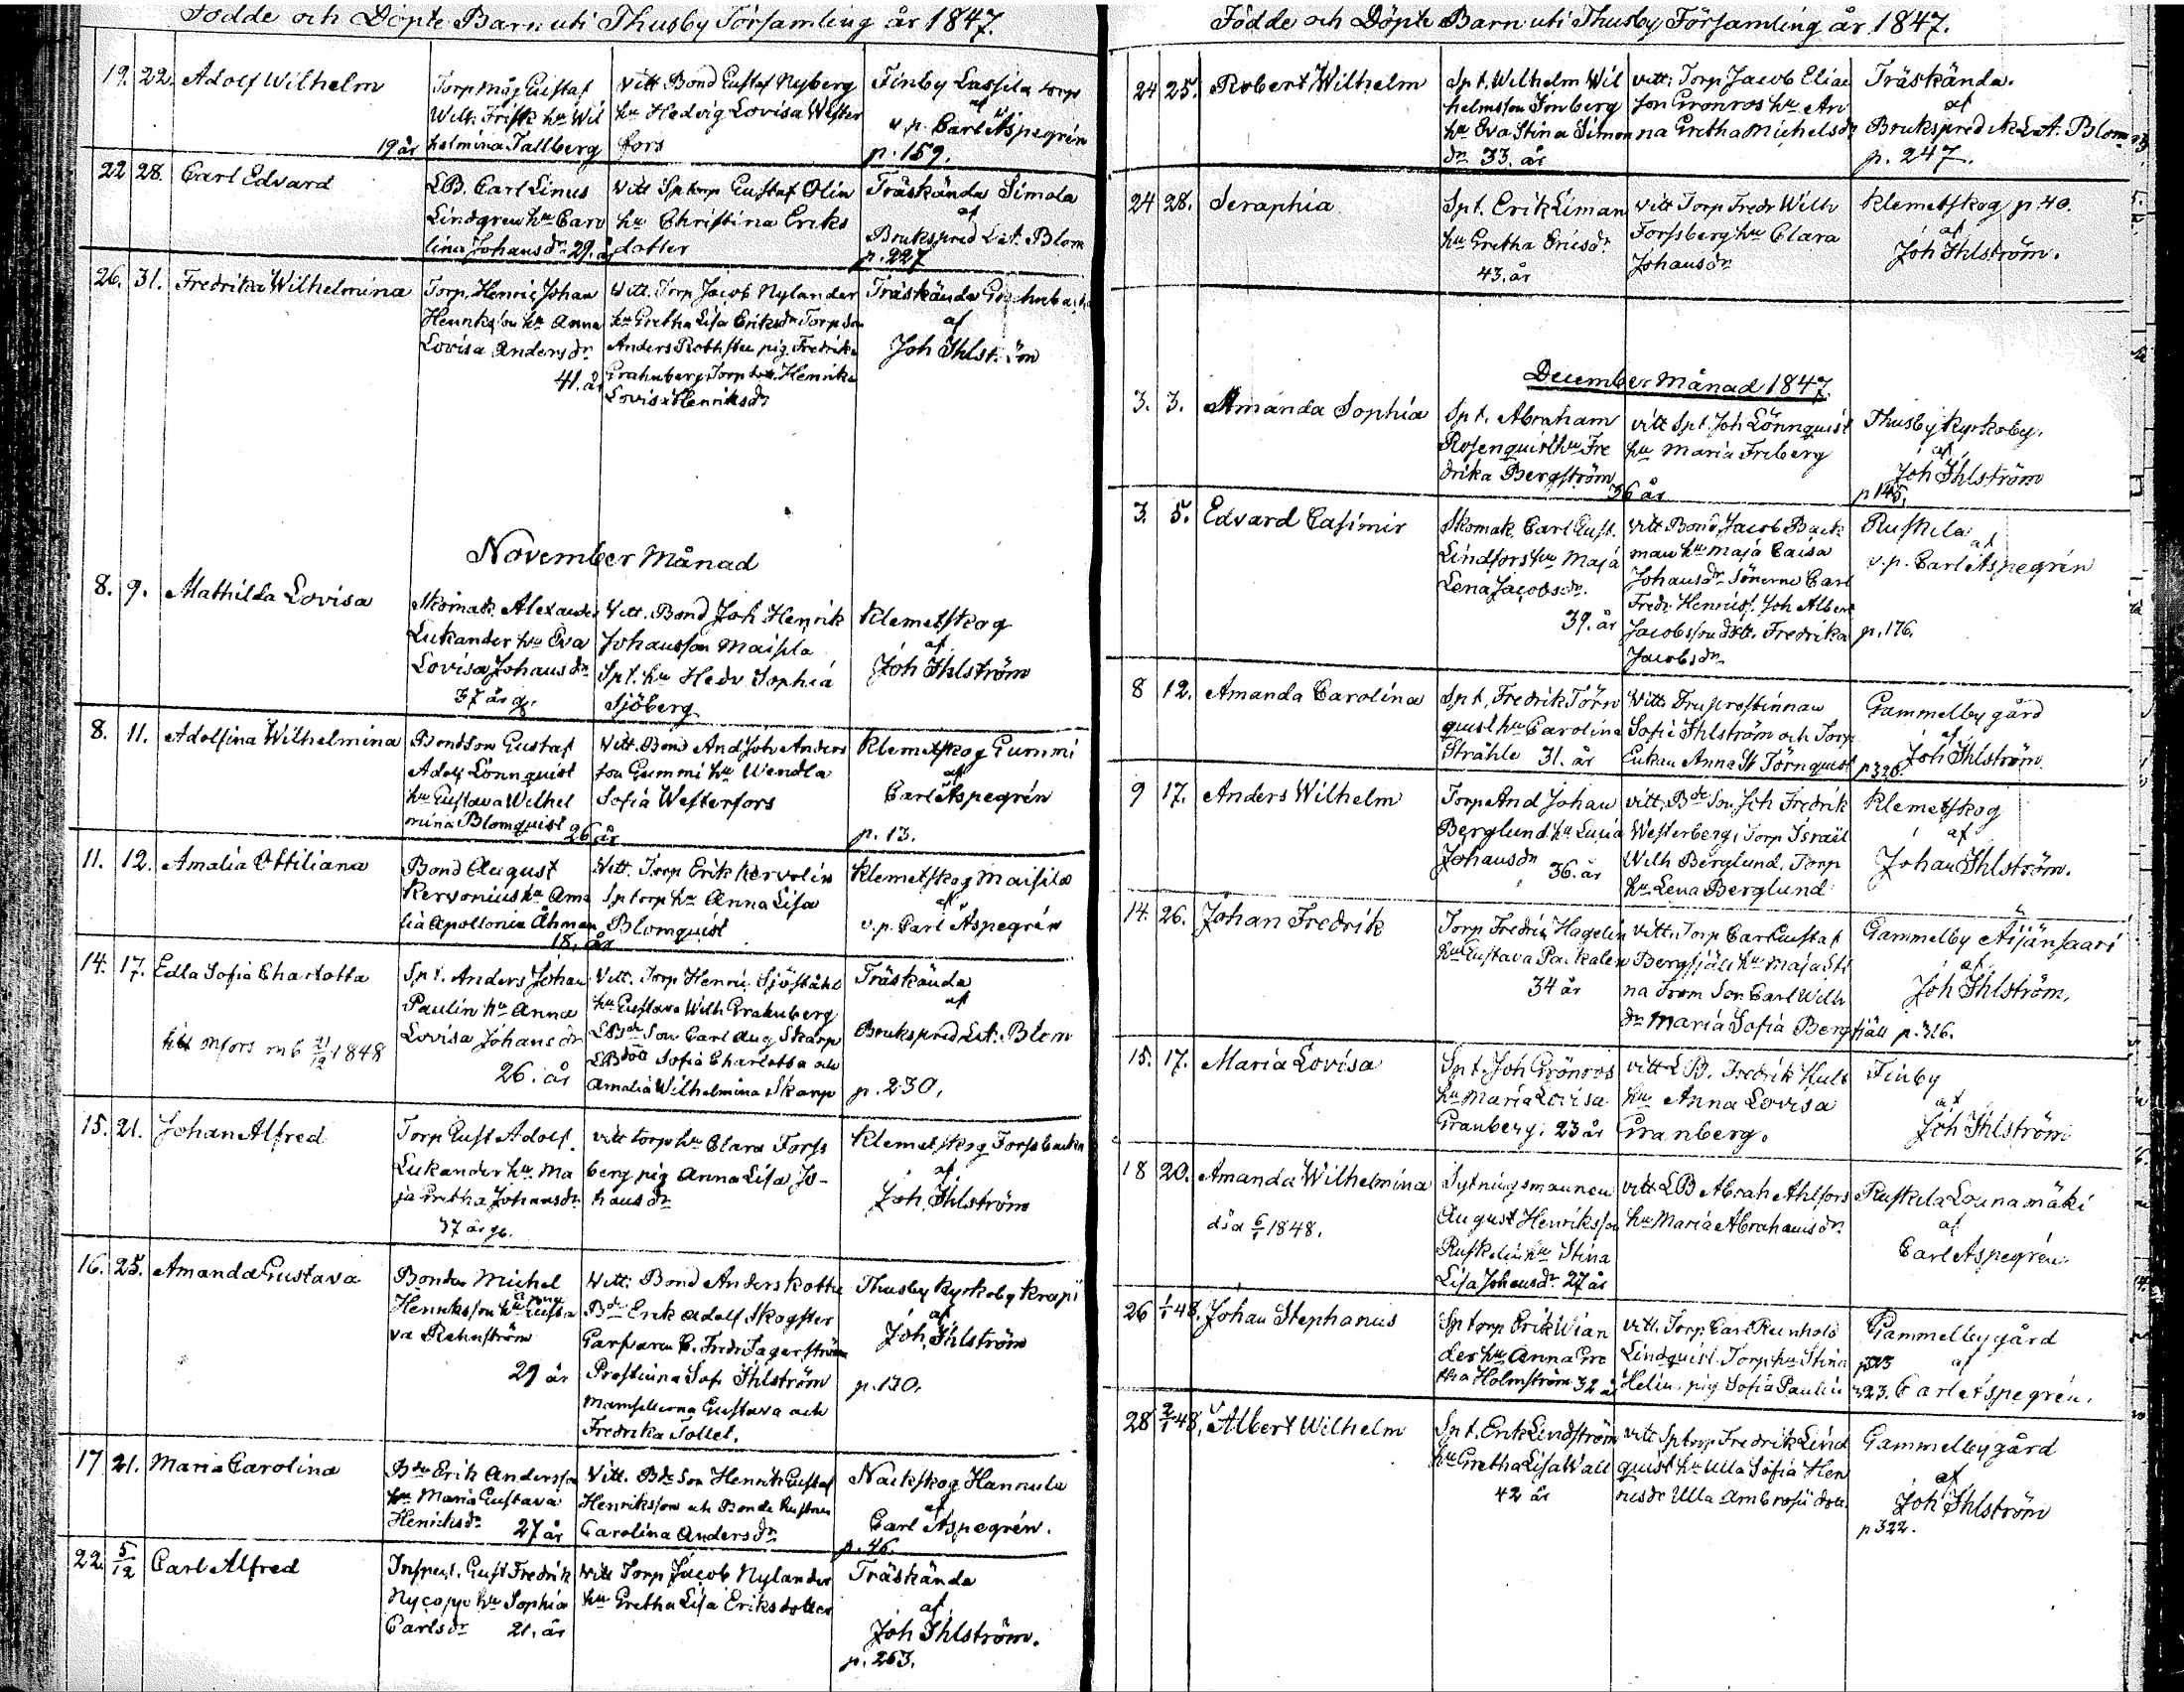 Födde och Döpte Barn uti Thusby Församling år 1847.
19. 22. Adolf Wilhelm
Torpmåg Gustaf
Wilh. Frisk hu Wil
helmina Tallberg
19 år
Vitt Bond Gustaf Nyberg
hu Hedvig Lovisa Wester
fors
Finby Lassila torp
af
v.p. Carl Aspegrén
p. 159.
22 28. Carl Edvard
LB. Carl Linus
Lindgren hu Caro
lina Johansdr 29. år
Vitt Sptorp Gustaf Olin
hu Christina Eriks
dotter
Träskända Simola
af
Brukspred Lit. Blom
p. 227
26. 31. Fredrika Wilhelmina
Torp. Henric Johan
Henriksson hu Anna
Lovisa Andersdr
41. år
Vitt. Torp Jacob Nylander
hu Gretha Lisa Eriksdr Torpson
Anders Rothsten pig. Fredrika
Grahnberg, Torpdot. Henrika
Lovisa Henriksdr
Träskända
af
Joh Ihlström
November Månad
8. 9. Mathilda Lovisa
Skomak. Alexander
Lukander hu Eva
Lovisa Johansdr
37 år g.
Vitt. Bond Joh Henrik
Johansson Maisila
Spt. hu Hedv Sophia
Sjöberg
Klemetskog
af
Joh Ihlström
8. 11. Adolfina Wilhelmina
Bondson Gustaf
Adolf Lönnquist
hu Gustava Wilhel
mina Blomquist 26 år
Vitt. Bond And Joh Anders
son Gummi hu Wendla
Sofia Westerfors
Klemetskog Gummi
af
Carl Aspegrén
p. 13.
11. 12. Amalia Ottiliana
Bond August
Kervonius hu Ama
lia Apollonia Åhman
18. år
Vitt. Torp Erik Kervolin
Sptorp hu Anna Lisa
Blomquist
Klemetskog Maisila
af
v.p. Carl Aspegrén
14. 17. Edla Sofia Charlotta
mfors m b 21/12 1848
Spt. Anders Johan
Paulin hu Anna
Lovisa Johansdr
26. år
Vitt. Torp Henric Sjöståhl
hu Gustava Wilh Grahnberg
LBde Son Carl Aug Skarp
LBdott Sofia Charlotta och
Amalia Wilhelmina Skarp
Träskända
af
Brukspred Lit. Blom
p. 230.
15. 21. Johan Alfred
Torp Gust Adolf.
Lukander hu Ma
ja Gretha Johansdr
37 år g.
vitt torp hu Clara Forss
berg pig Anna Lisa Jo-
hansdr
Klemetskog Forsbacka
af
Joh Ihlström
16. 25. Amanda Gustava
Bonden Michel
Henriksson hu Anna Gusta
va Rehnström
29 år
Vitt. Bond Anders Kottu
Bde Erik Adolf Skogster
Garfvaren C. Fredr Fagerström
Prostinna Sof Ihlström
Mamsellerna Gustava och
Fredrika Tollet.
Thusby Kyrkoby Krapi
af
Joh. Ihlström
p. 130.
17 21. Maria Carolina
Bdn Erik Andersson
hu Maria Gustava
Henriksdr 27 år
Vitt. Bde Son Henrik Gustaf
Henriksson och Bonde hustrun
Carolina Andersdr
Nackskog Hannula
af
Carl Aspegrén.
p. 46.
22. 5/12 Carl Alfred
Inspect. Gust Fredrik
Nycopp hu Sophia
Carlsdr 21. år
Vitt Torp Jacob Nylander
hu Gretha Lisa Eriksdotter
Träskända
af
Joh Ihlström.
p. 263.
Födde och Döpte Barn uti Thusby Församling år 1847.
24 25. Robert Wilhelm
Spt. Wilhelm Wil
helmsson Tonberg
hu Eva Stina Simon
dr 33. år
vitt. Torp Jacob Elias
son Gronros hu An
na Gretha Michelsdr
Träskända.
af
Brukspred Lit. Blom
p. 247.
24 28. Seraphia
Spt. Erik Liman
hu Gretha Ericsdr
43. år
Vitt Torp Fredr Wilh
Forssberg hu Clara
Johansdr
Klemetskog p. 40.
af
Joh Ihlström.
December Månad 1847.
3. 3. Amanda Sophia
Spt. Abraham
Rosenquist hu Fre
drika Bergström
36 år
vitt Spt. Joh Lönnquist
hu Maria Friberg
Thusby Kyrkoby.
af
Joh Ihlström
p 145.
3. 5. Edvard Casimir
Skomak. Carl Gust.
Lindfors hu Maja
Lena Jacobsdr.
39. år
Vitt Bond Jacob Back
man hu Maja Caisa
Johansdr. Sönerne Carl
Fredr. Henrist. Joh Albert
Jacobsson dott. Fredrika
Jacobsdr
Ruskila
af
v.p. Carl Aspegrén
p. 176.
8 12. Amanda Carolina
Spt. Fredrik Törn
quist hu Carolina
Stråhle 31. år
Vitt. Fru prostinnan
Sofie Ihlström och Torp
Enkan Anna St Törnquist
Gammelby gård
af
Joh Ihlström
p 320.
9 17. Anders Wilhelm
Torp And Johan
Berglund hu Lovisa
Johansdr 36. år
Vitt. Bde Son Joh Fredrik
Westerberg, Torp Israel
Wilh Berglund, Torp
hu Lena Berglund
Klemetskog
af
Johan Ihlström.
14. 26. Johan Fredrik
Torp Fredric Hagelin
hu Gustava Packalen
34 år
Vitt. Torp Carl Gustaf
Bergfjäll hu Maja Sti
na From Son Carl Wilh
dr Maria Sofia Bergfjäll p. 316.
Gammelby Äijänsaari
af
Joh Ihlström.
15. 17. Maria Lovisa
Spt. Joh Grönros
hu Maria Lovisa
Granberg. 23 år
vitt LB. Fredrik Hult
hu Anna Lovisa
Granberg.
Finby
af
Joh Ihlström
18 20. Amanda Wilhelmina
död 6/1 1848.
Sytningsmannen
August Henriksson
Ruskelin hu Stina
Lisa Johansdr 27 år
Vitt LB Abrah Ahlfors
hu Maria Abrahamsdr.
Ruskela Lounamäki
af
Carl Aspegrén
26 1/1 48. Johan Stephanus
Sptorp Erik Wian
der hu Anna Gre
tha Holmström 32 år
Vitt. Torp. Carl Reinhold
Lindquist. Torp hu Stina
Helin, pig Sofia Paulin
Gammelby gård
p323 af
323. Carl Aspegrén.
28 2/1 48. Albert Wilhelm
Spt. Erik Lindström
hu Gretha Lisa Wall
42 år
Vitt Sptorp Fredrik Lind
quist hu Ulla Sofia Hen
ricsdr Ulla Ambrosii dott.
Gammelby gård
af
Joh Ihlström
p 322.